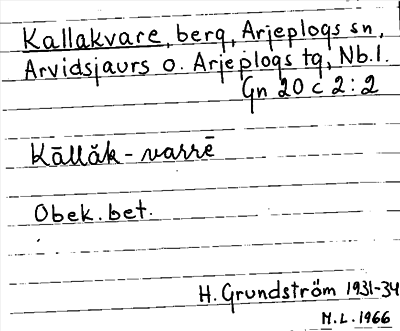 Kallakvare, berg, Arjeplogs sn,
Arvidsjaurs o. Arjeplogs tg, Nb.l.
Gn 20 C 2:2
Kāllăk-varrē
Obek. bet.
H. Grundström 1931-34
M.L. 1966